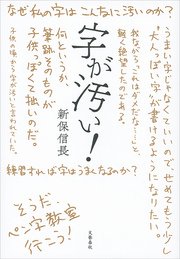 なぜ私の字はこんなに汚いのか?
うまい字じゃなくていいのでせめてもう少し
“大人っぽい字”が書けるようになりたい。
我ながら、「これはダメだな……」と、
軽く絶望したのである。
字が汚い!
新保信長
何というか、
筆跡そのものが
子供っぽくて拙いのだ。
子供の頃から字が汚いと言われていた。
練習すれば字はうまくなるのか?
そうだ
ペン字教室
行こう!
文藝春秋